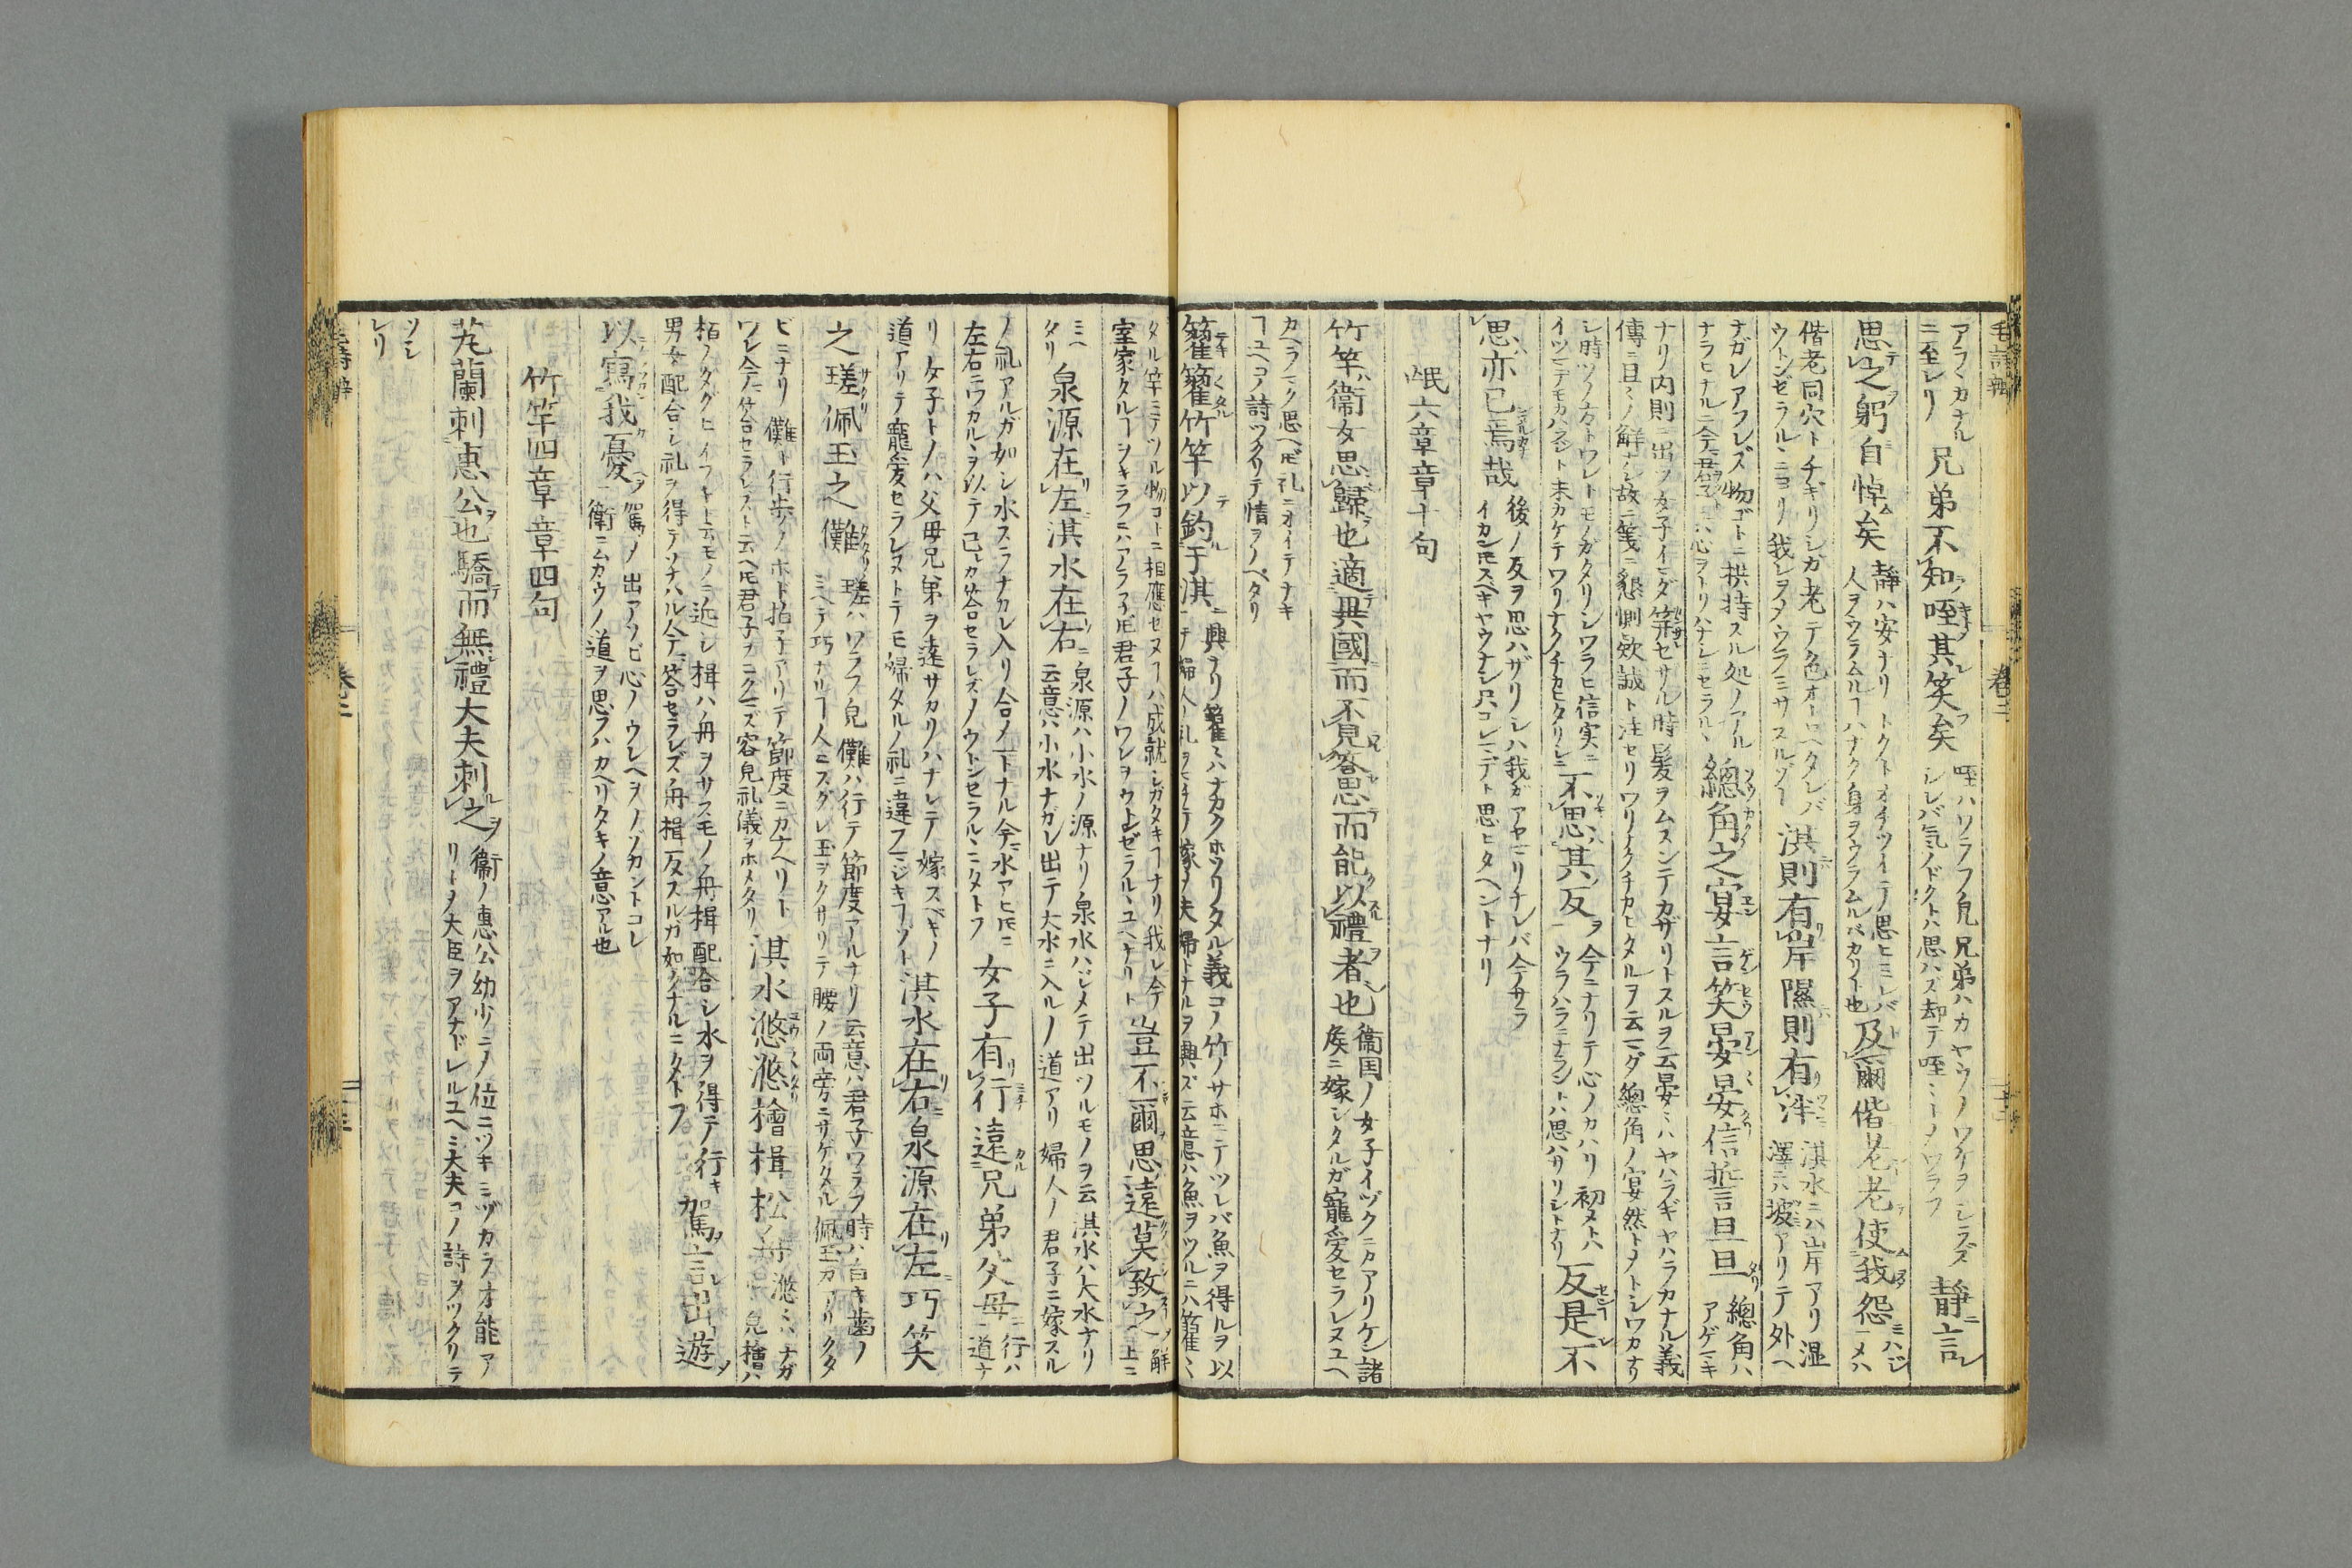 アラ〻カナル
ニ至レリ
兄弟不知咥其笑矣
咥ハワラフ皃兄弟ハカヤウノワケヲシラズ
シレバ気ノドクトハ思ハズ却テ咥〻トノワラフ
靜言
思之躬自悼矣
靜ハ安ナリトクトオチツイテ思ヒミレバ
人ヲウラムルヿハナク身ヲウラムルバカリト也
及爾偕老老使我怨
偕老同穴トチギリシガ老テ色オトロヘタレバ
ウトンゼラルヽニヨリ我レヲウラミサスルゾト
淇則有岸隰則有泮
淇水ニハ山岸アリ湿
澤ニハ坡アリテ外ヘ
ナガレアフレズ物ゴトニ拱持スル処ノアル
ナラヒナルニ今君子ハ心ヲトリハナシニセラルヽ
總角之宴言笑晏晏信誓旦旦
總角ハ
アゲマキ
ナリ内則ニ出ヅ女子イマダ笄セサル時髪ヲムスンデカザリトスルヲ云晏〻ハヤハラギヤハラカナル義
傳ニ旦〻ノ解ナシ故ニ箋ニ懇惻欵誠ト注セリワリナクチカヒタルヲ云マダ總角ノ宴然トメトシワカナリ
シ時ヅノ方トワレトモノガタリシワラヒ信実ニ
イツマデモカハラジト末カケテワリナクチカヒタリシニ
不思其反
今ニナリテ心ノカハリ初メトハ
ウラハラニナラントハ思ハザリシトナリ
反是不
思亦已焉哉
後ノ反ヲ思ハザリシハ我ガアヤマリナレバ今サラ
イカンモスベキヤウナシ只コレマデト思ヒタヘントナリ
氓六章章十句
竹竿衛女思歸也適異國而不見答思而能以禮者也
衞国ノ女子イヅクニカアリケン諸
侯ニ嫁シタルガ寵愛セラレヌユヘ
カヘラマク思ヘ𪜈礼ニオイテナキ
ヿユヘコノ詩ツクリテ情ヲノベタリ
籊籊竹竿以釣于淇
興ナリ籊〻ハナガクホソリタル義コノ竹ノサホニテツレバ魚ヲ得ルヲ以
テ婦人ノ礼ヲモチテ嫁メ夫婦トナルヲ興ズ云意ハ魚ヲツルニハ籊〻
タル竿ニテツル物コトニ相應セヌヿハ成就シガタキヿナリ我レ今
室家タルヿヲキラフニハアラネ𪜈君子ノワレヲウトンゼラルヽユヘナリト
豈不爾思遠莫致之
解
上ニ
ミヘ
タリ
泉源在左淇水在右
泉源ハ小水ノ源ナリ泉水ハジメテ出ツルモノヲ云淇水ハ大水ナリ
云意ハ小水ナガレ出テ大水ニ入ルノ道アリ婦人ノ君子ニ嫁スル
ノ礼アルガ如シ水スラナカレ入リ合ノ一トナル今水アヒ𪜈ニ
左右ニワカルヽヲ以テ己カ荅セラレズノウトンセラルヽニタトフ
女子有行遠兄弟父母
行ハ
道ナ
リ女子トノハ父母兄弟ヲ遠サカリハナレテ嫁スベキノ
道アリテ寵愛セラレヌトテモ婦タルノ礼ニ違フマジキヿゾト
淇水在右泉源在左巧笑
之瑳佩玉之儺
瑳ハワラフ皃儺ハ行テ節度アルナリ云意ハ君子ワラフ時ハ白キ歯ノ
ミヘテ巧ナルヿ人ニスグレ玉ヲクサリテ腰ノ両旁ニサゲタル佩玉カアリクタ
ビニナリ儺〻ト行歩ノホド拍子アリテ節度ニカナヘリト
ワレ今荅セラレズト云ヘ𪜈君子ヲニクマズ容皃礼儀ヲホメタリ
淇水滺滺檜楫松舟
滺〻ハナガ
ルヽ皃檜ハ
栢ノタグヒイフキト云モノニ近シ楫ハ舟ヲサスモノ舟楫配合シ水ヲ得テ行キ
男女配合シ礼ヲ得テソナハル今荅セラレズ舟楫反スルガ如クナルニタトフ
駕言出遊
以寫我憂
駕ノ出アソビ心ノウレヘヲノゾカントコレ
衞ニムカウノ道ヲ思フハカヘリタキノ意アル也
竹竿四章章四句
芄蘭刺惠公也驕而無禮大夫刺之
衞ノ惠公幼少ニノ位ニツキミヅカラオ能ア
リトヲ大臣ヲアナドレルユヘニ大夫コノ詩ヲツクリテ
ソシ
レリ